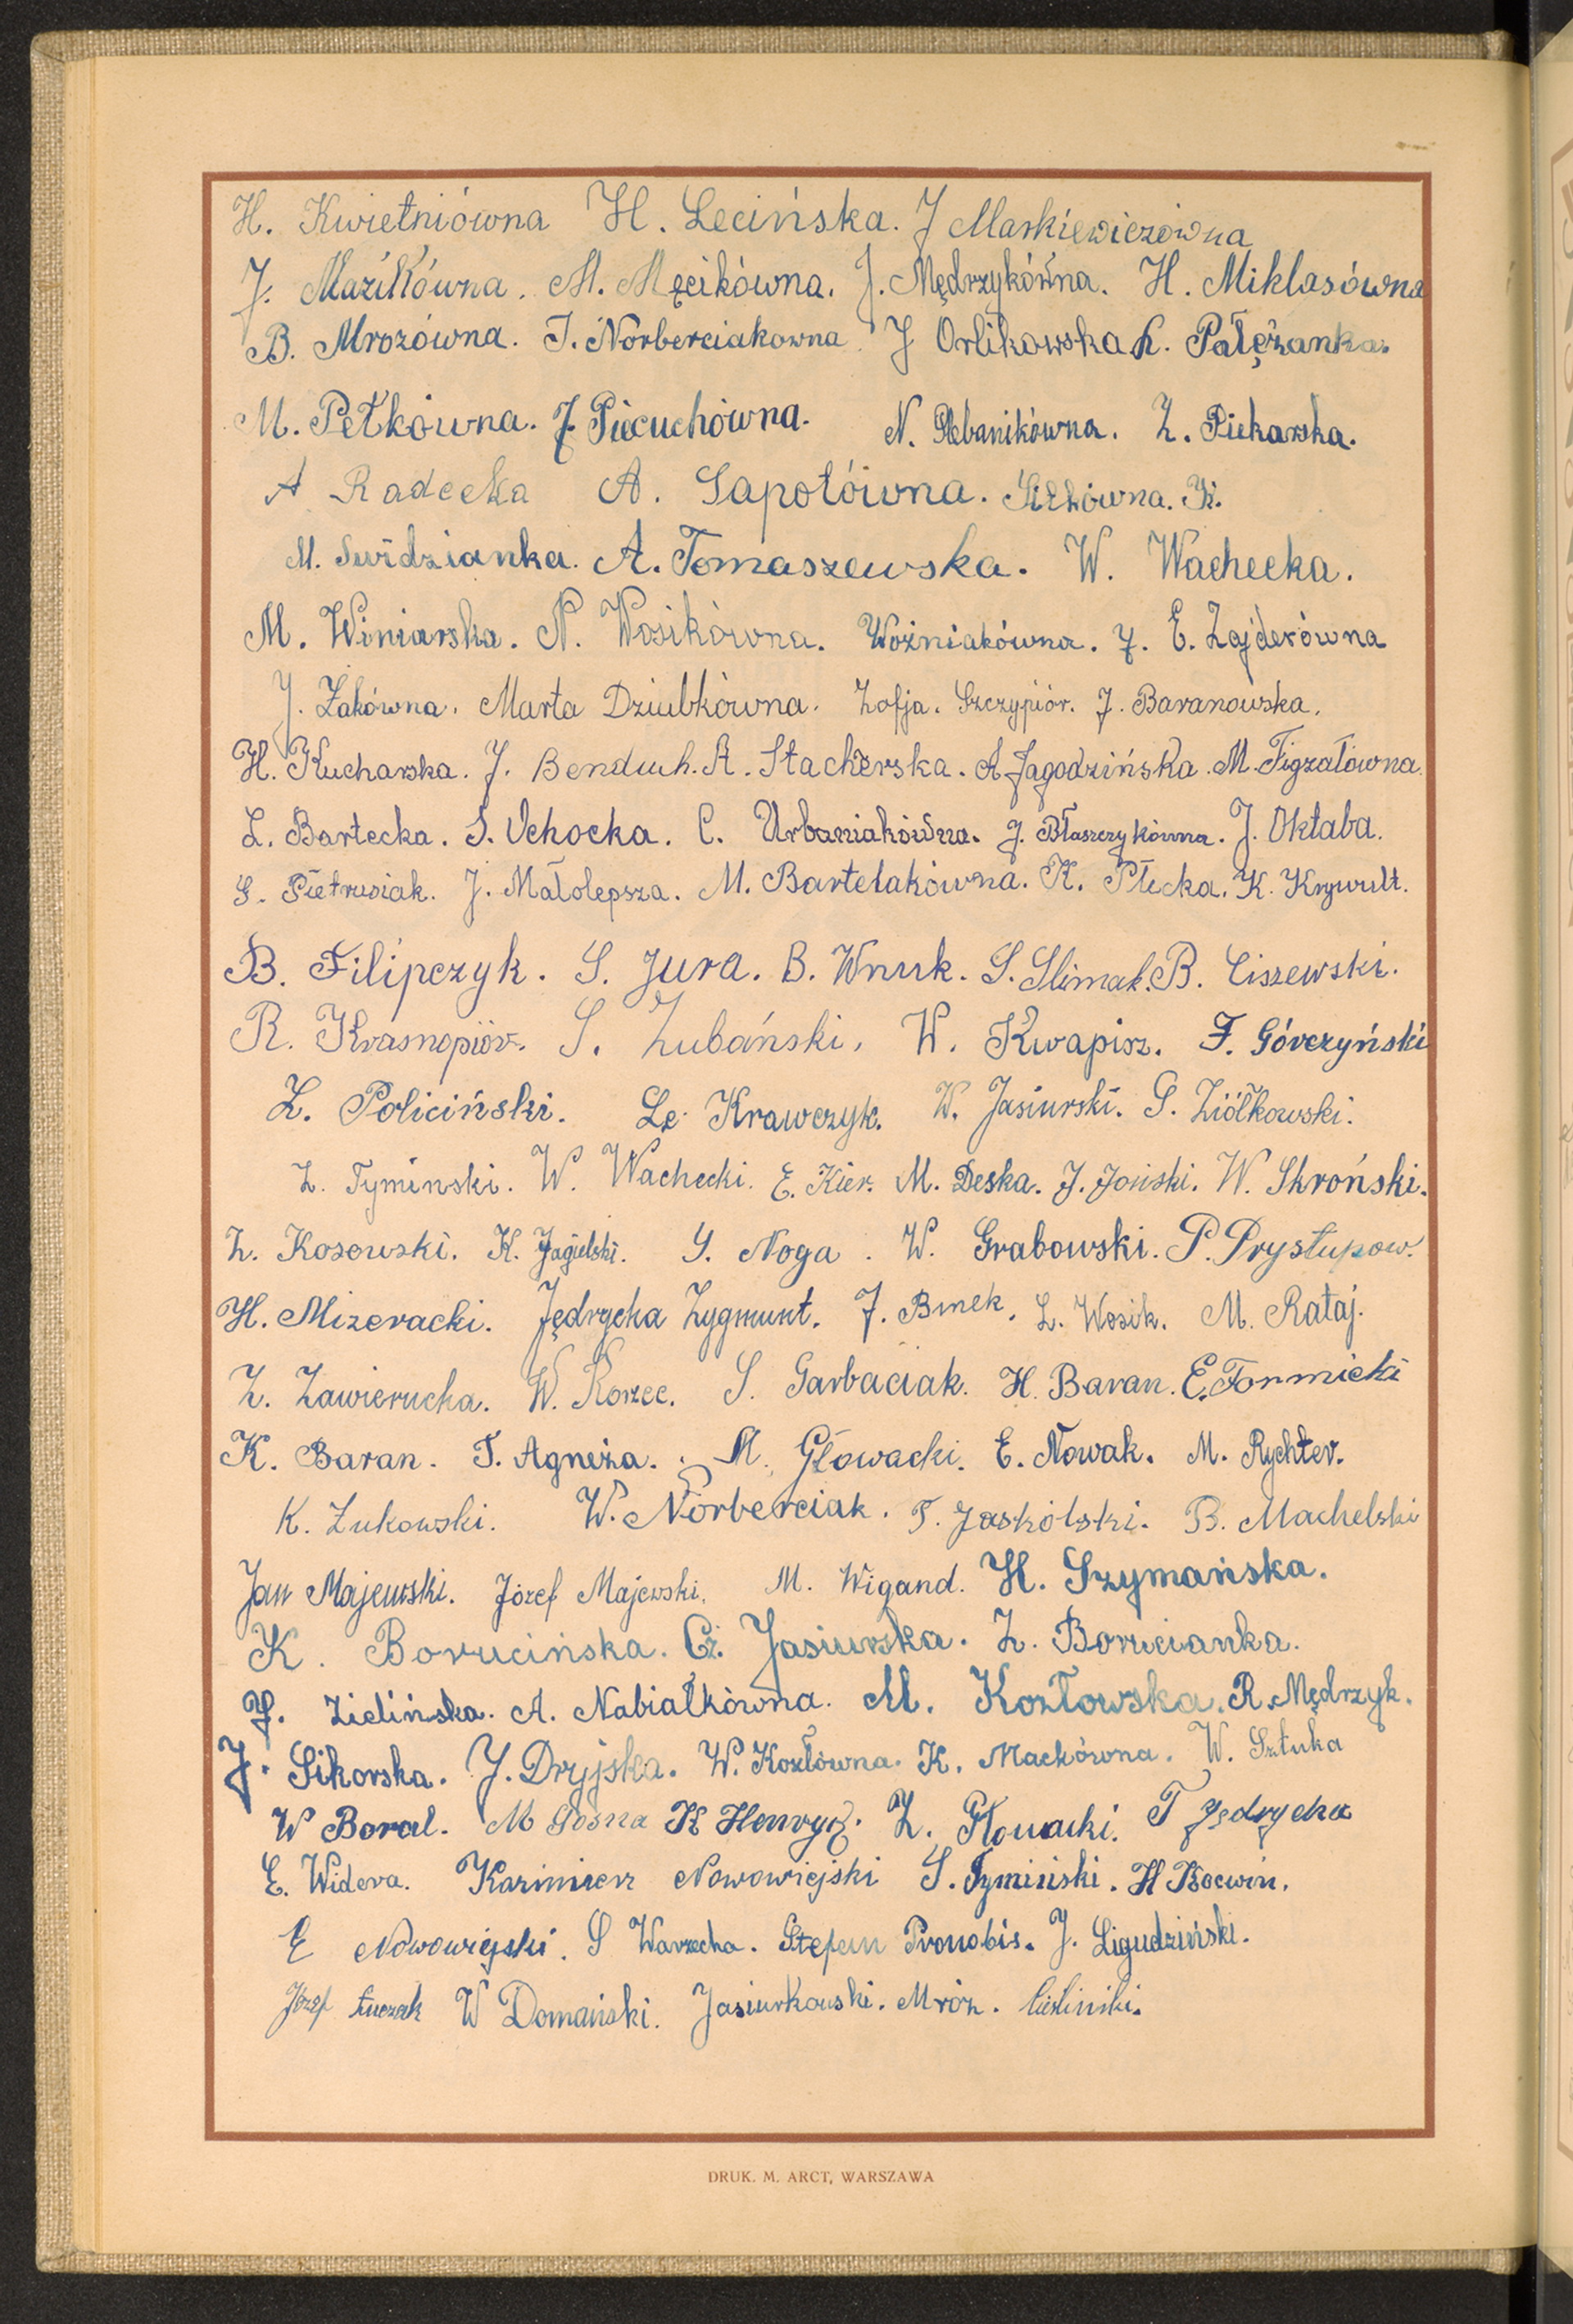 H. Kwietniówna H. Lecińska. J Maskiewiczówna
J. Mazikówna. M. Męcikówna. J. Mędrzykówna. H. Miklasówna
B. Mrozówna. I. Norberciakowna J Orlikowska K. Patężanka.
M. Petkówna. J Piecuchówna. N. Plebanikówna. Z. Piekarska.
A Radecka A. Sapotówna. K.
M. Swidzianka. A. Tomaszewska. W. Wachecka.
M. Winiarska. N. Wosikówna. Woźniakówna. J. E. Zajderówna
J. Żakówna. Marta Dziubkówna. Zofja. Szczypiór. J. Baranowska.
H. Kucharska. J. Benduch. A. Stacherska. A Jagodzińska. M. Figzałówna.
L. Bartecka. S. Uchocka. C. Urbaniakówna. J. Błaszczykówna. J. Oktaba.
S. Pietrusiak. J. Małolepsza. M. Bartelakówna. K. Płucka. K. Krywult.
B. Filipczyk. S. Jura. B. Wnuk. S. Slimak. B. Ciszewski.
R. Krasnopiór. S. Zubański. W. Kwapisz. F. Górczyński
Z. Policiński. Le Krawczyk. W. Jasiurski. S. Ziółkowski.
Z. Tyminski. W. Wachecki. E. Kier. M. Deska. J. Joński. W. Skroński.
Z. Kosowski. K. Jagielski. Y. Noga. W. Grabowski. P. Prystupow.
H. Mizeracki. Jędrycha Zygmunt. J. Bmek. L. Wosik. M. Rataj.
Z. Zawierucha. W. Korzec. S. Garbaciak. H. Baran. E. Formicki
K. Baran. T. Agneża. M. Głowacki. E. Nowak. M. Rychter.
K. Żukowski. W. Norberciak. T. Jaskólski. B. Machelski
Jan Majewski. Józef Majewski. M. Wigand. H. Szymańska.
K. Borucińska. Cz. Jasiurska. Z. Borucianka.
J. Zielińska. A. Nabiałkówna. M. Kozłowska. R. Mędrzyk.
J. Sikorska. J. Dryjska. W. Kozłówna. K. Mackówna. W. Sztuka
W Boral. M Sosna K Henryg. Z. Głowacki. T Jędrycha
E. Widera. Kazimierz Nowowiejski S. Tymiński. H Kocwin.
E Nowowiejski. S Warzecha. Stefan Pronobis. J. Ligudziński.
Józef Łuczak W Domański. Jasiurkowski. Mróz.
DRUK. M. ARCT, WARSZAWA